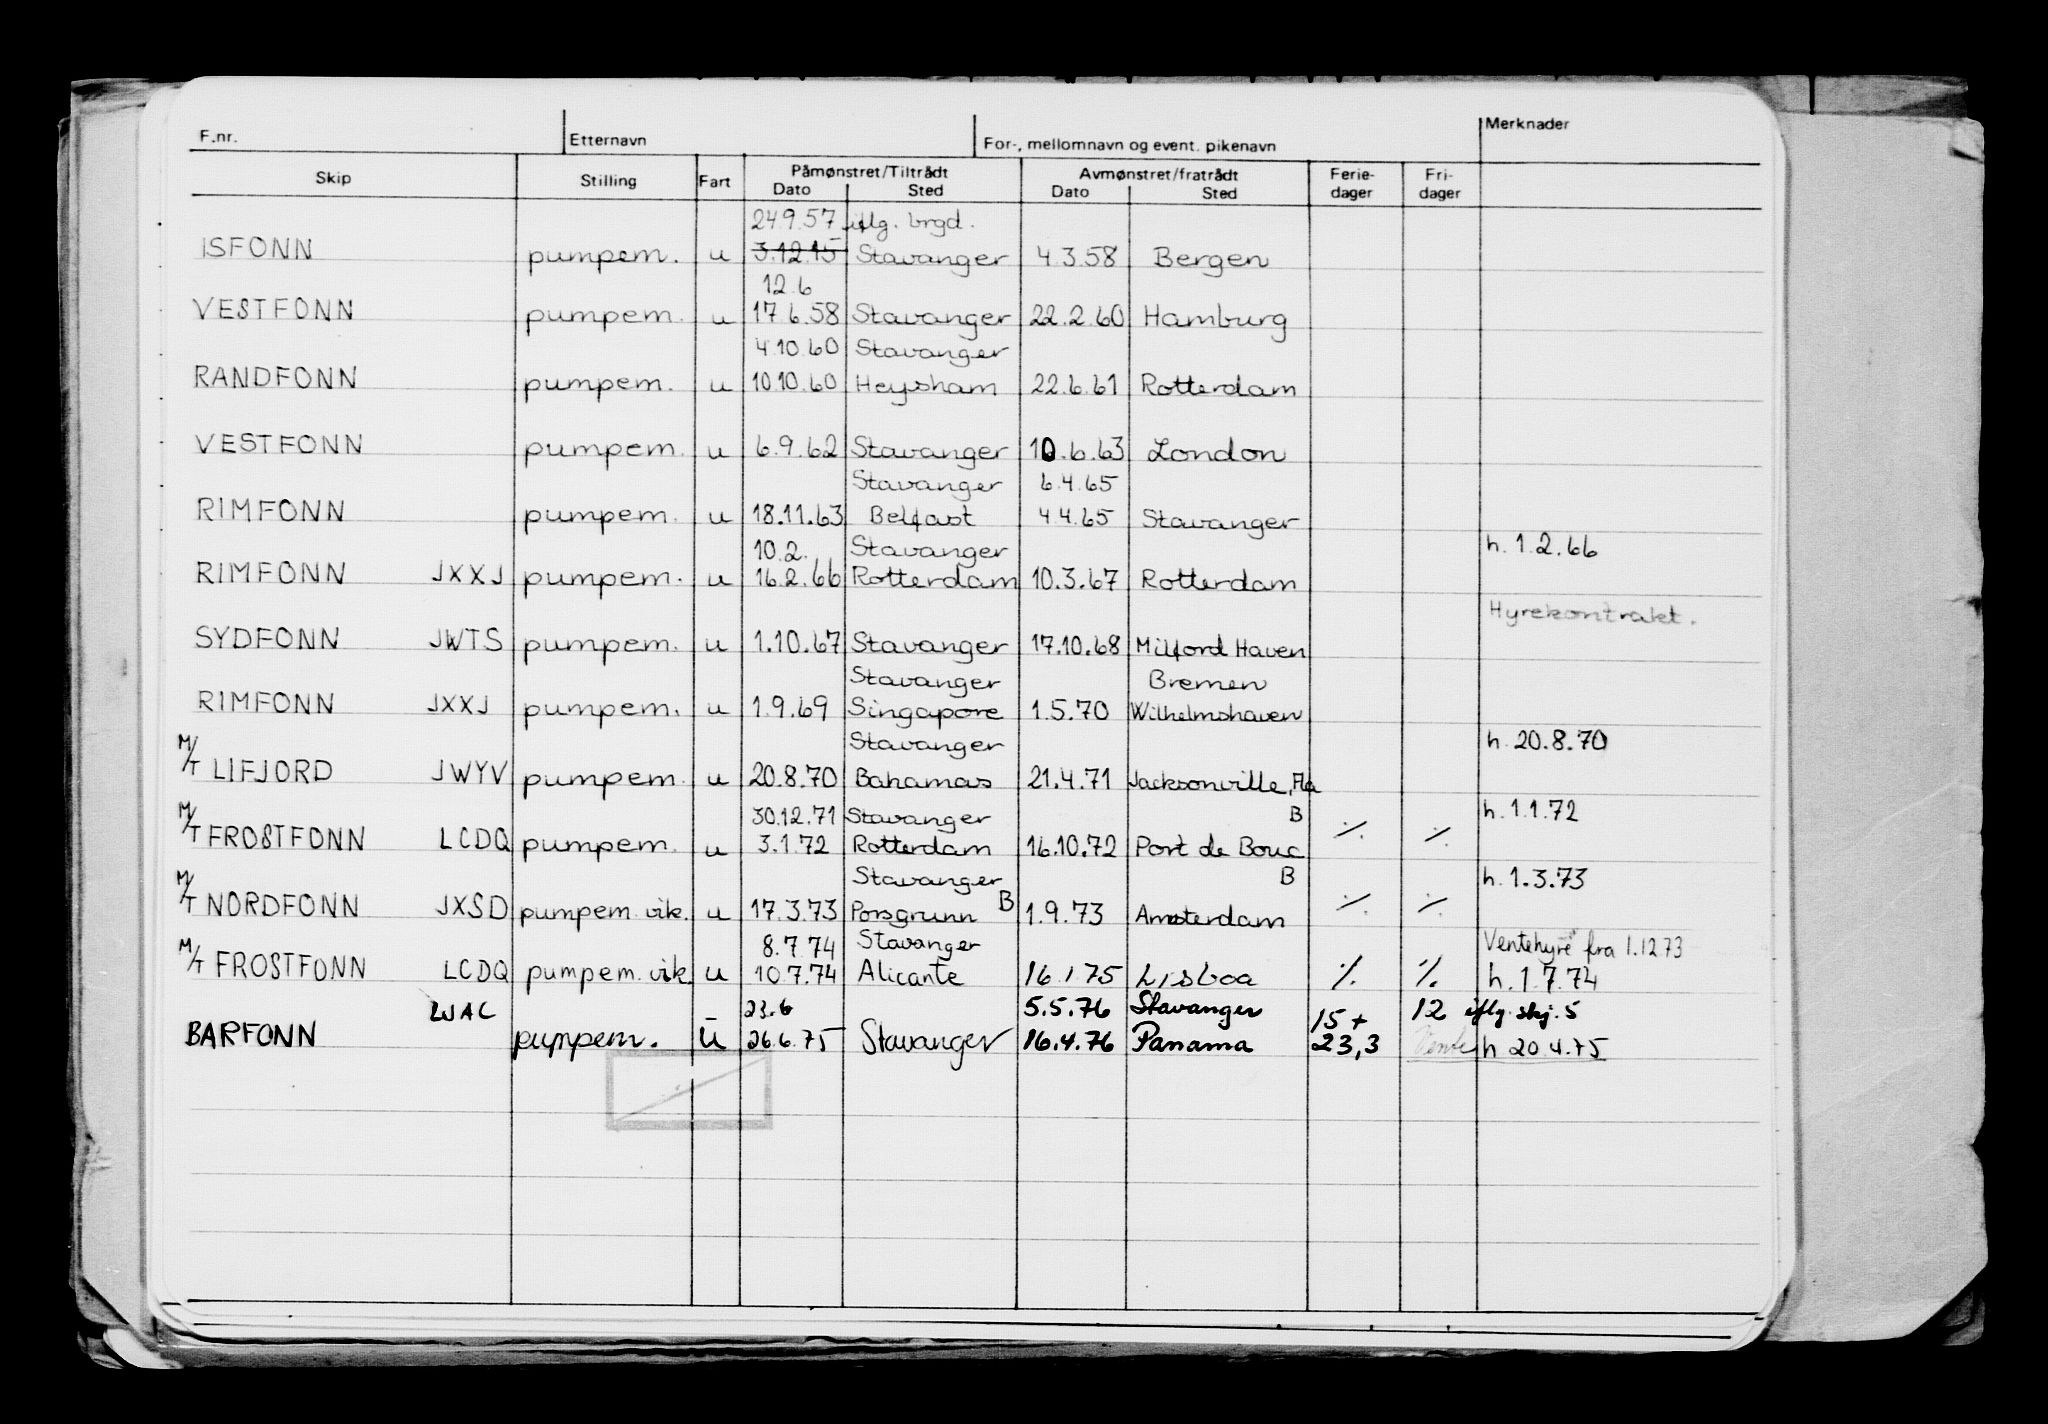 F.nr. Etternavn For-, mellomnavn og event. pikenavn Merknader
Skip Stilling Fart Påmønstret/Tiltrådt Avmønstret/fratrådt Ferie- Fri-
Dato Sted Dato Sted dager dager
24.9.57 iflg. brgd.
ISFONN pumpem. u 3.12.15 Stavanger 4.3.58 Bergen
12.6
VESTFONN pumpem. u 17.6.58 Stavanger 22.2.60 Hamburg
4.10.60 Stavanger
RANDFONN pumpem. u 10.10.60 Heysham 22.6.61 Rotterdam
VESTFONN pumpem. u 6.9.62 Stavanger 10.6.63 London
Stavanger 6.4.65
RIMFONN pumpem. u 18.11.63 Belfast 4.4.65 Stavanger
10.2. Stavanger h. 1.2.66
RIMFONN JXXJ pumpem. u 16.2.66 Rotterdam 10.3.67 Rotterdam
Hyrekontrakt.
SYDFONN JWTS pumpem. u 1.10.67 Stavanger 17.10.68 Milford Haven
Stavanger Bremen
RIMFONN JXXJ pumpem. u 1.9.69 Singapore 1.5.70 Wilhelmshaven
Stavanger h. 20.8.70
M/T LIFJORD JWYV pumpem. u 20.8.70 Bahamas 21.4.71 Jacksonville, Fla
30.12.71 Stavanger B h. 1.1.72
M/T FROSTFONN LCDQ pumpem. u 3.1.72 Rotterdam 16.10.72 Port de Bouc ./. ./.
Stavanger B h. 1.3.73
M/T NORDFONN JXSD pumpem. vik. u 17.3.73 Porsgrunn B 1.9.73 Amsterdam ./. ./.
8.7.74 Stavanger Ventehyre fra 1.12.73
M/T FROSTFONN LCDQ pumpem. vik. u 10.7.74 Alicante 16.1.75 Lisboa ./. ./. h. 1.7.74
LJAL 23.6 5.5.76 Stavanger 15+ 12 iflg. skj. 5
BARFONN pumpem. u 26.6.75 Stavanger 16.4.76 Panama 23,3 Vente h 20.4.75